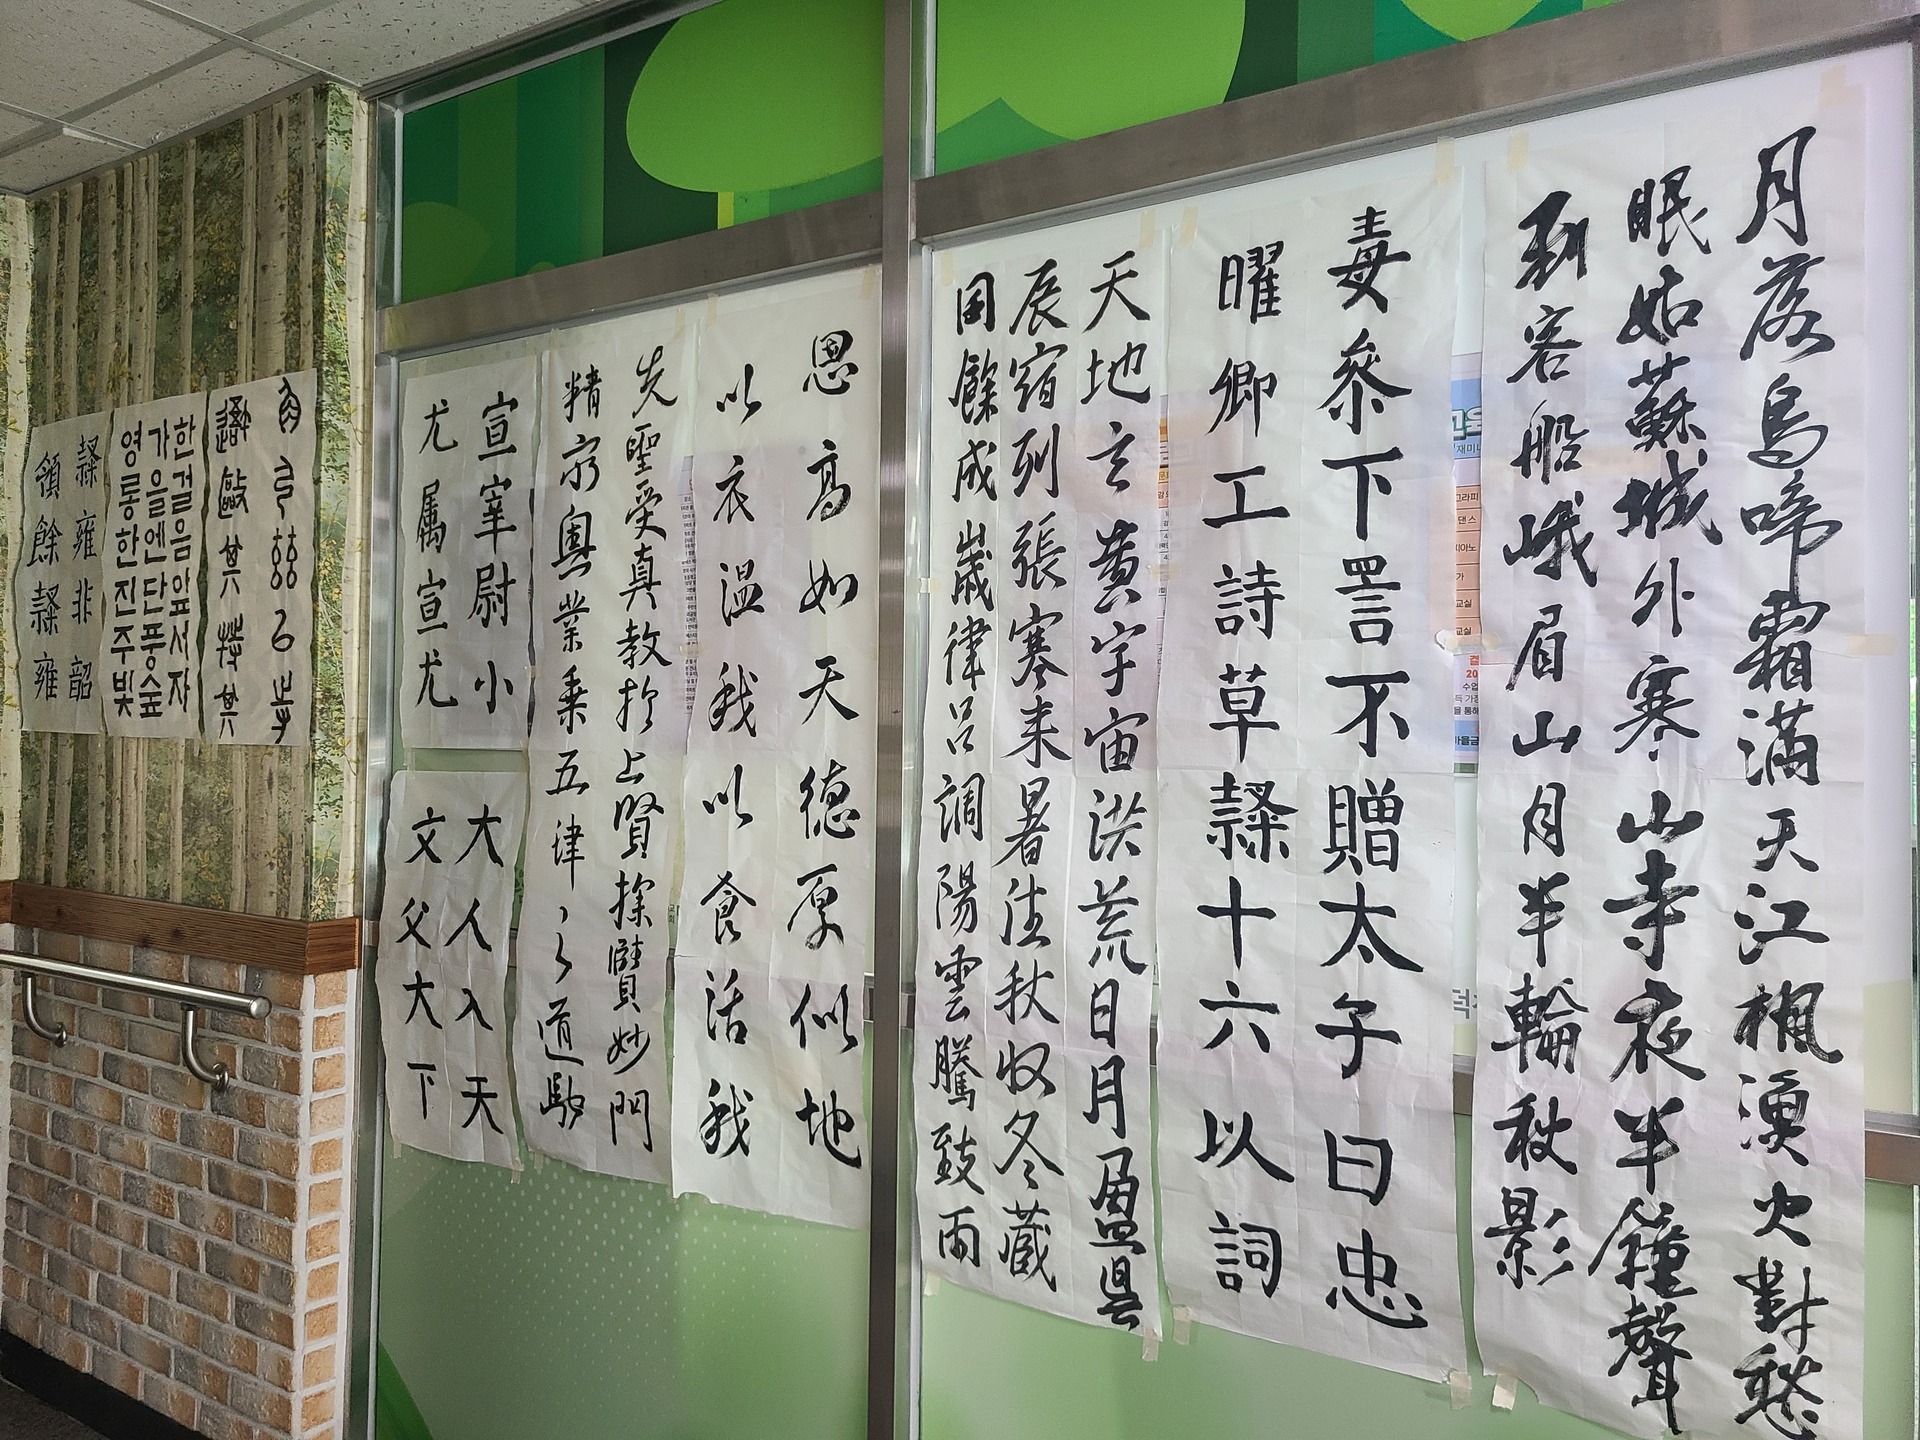 月落烏啼霜滿天江楓漁火對愁
眠姑蘇城外寒山寺夜半鐘聲
到客船峨眉山月半輪秋影
毒泰下詈不贈太子曰忠
曜卿工詩草隸十六以詞
天地玄黃宇宙洪荒日月盈昃
辰宿列張寒来暑往秋收冬藏
閏餘成歲律呂調陽雲騰致雨
恩高如天德厚似地
以衣溫我以食活我
先聖受真教於上賢探賾妙門
精窮奧業乗五津之道馳
宣宰尉小
尤属宣尤
大人入天
文父大下
한걸음앞서자
가을엔단풍숲
영롱한진주빛
隸雍非韶
領餘隸雍